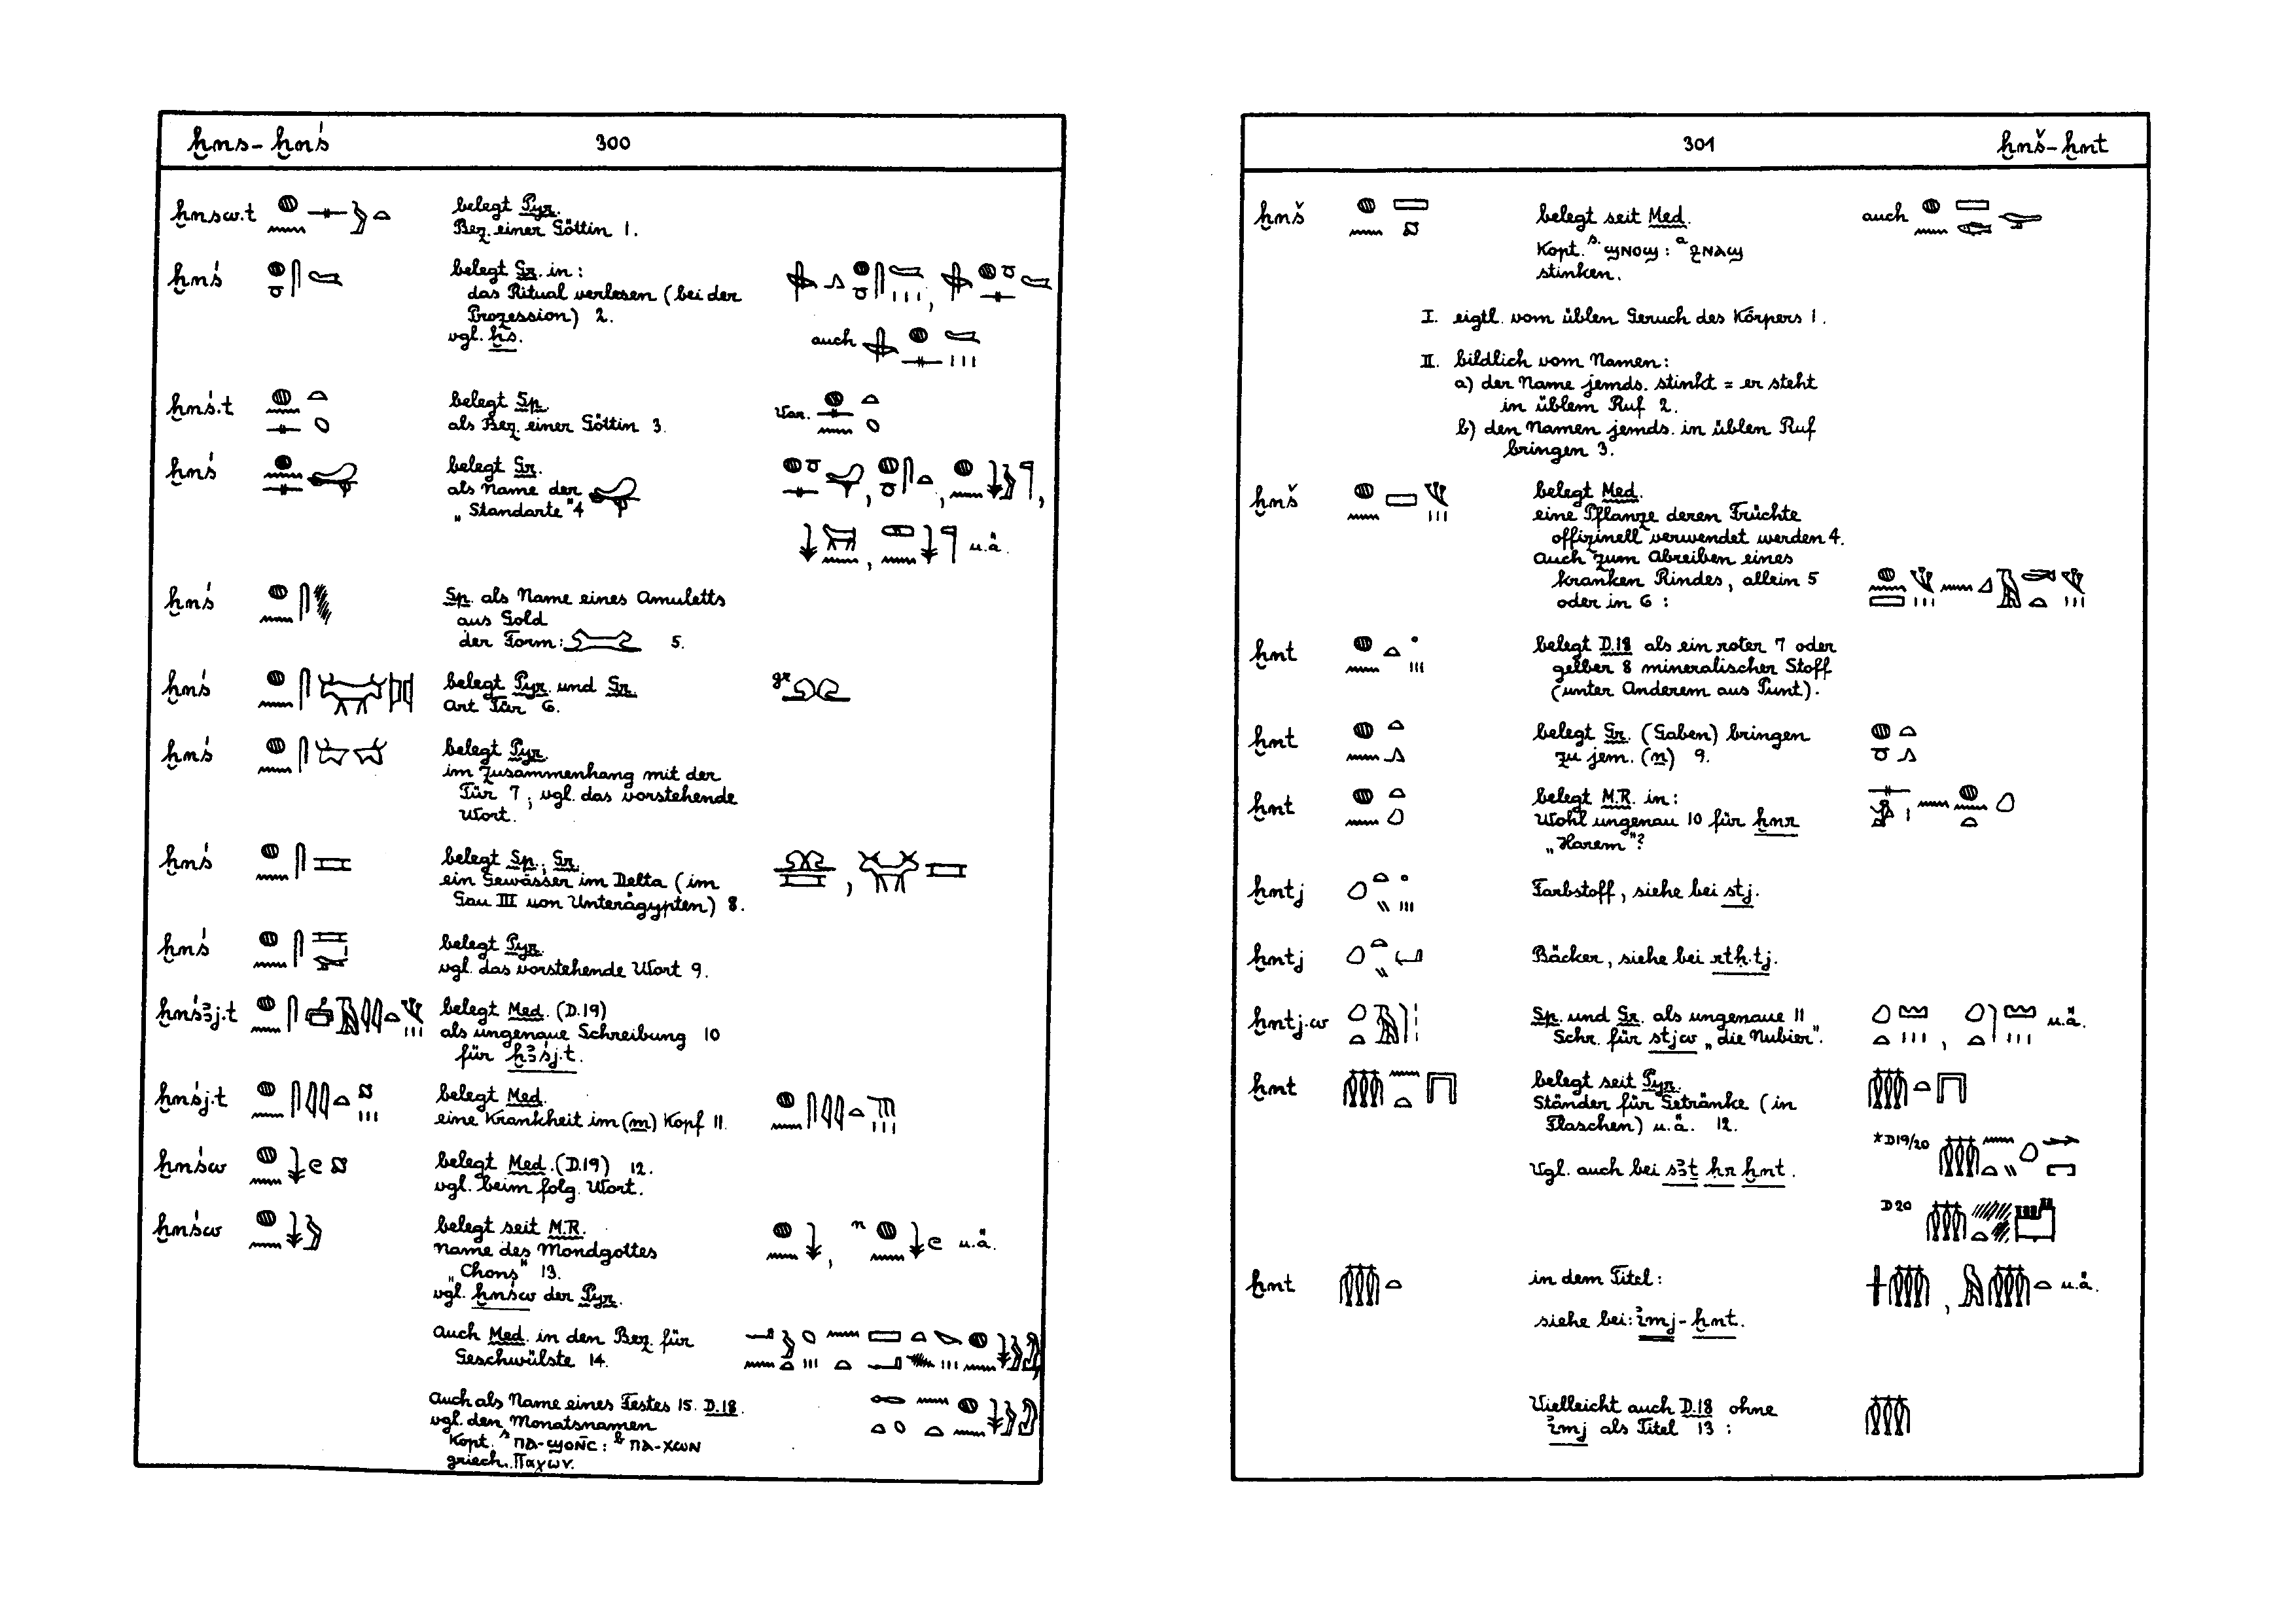 ḫns - ḫnś 300
ḫnsw.t belegt Pyr.
Bez. einer Göttin 1.
ḫnś belegt Gr. in:
das Ritual verlesen (bei der
Prozession) 2.
vgl. ḫś. auch
ḫnś.t belegt Sp.
als Bez. einer Göttin 3. Var.
ḫnś belegt Gr.
als Name der
„Standarte" 4
u.ä.
ḫnś Sp. als Name eines Amuletts
aus Gold
der Form: 5.
ḫnś belegt Pyr. und Gr. gr
Art Tür 6.
ḫnś belegt Pyr.
im Zusammenhang mit der
Tür 7; vgl. das vorstehende
Wort.
ḫnś belegt Sp., Gr.
ein Gewässer im Delta (im
Gau III von Unterägypten) 8.
ḫnś belegt Pyr.
vgl. das vorstehende Wort 9.
ḫnśꜣj.t belegt Med. (D.19)
als ungenaue Schreibung 10
für ḫꜣśj.t.
ḫnśj.t belegt Med.
eine Krankheit im (m) Kopf 11.
ḫnśw belegt Med. (D.19) 12.
vgl. beim folg. Wort.
ḫnśw belegt seit M.R. , n u.ä.
Name des Mondgottes
„Chons" 13.
vgl. ḫnśw der Pyr.
Auch Med. in den Bez. für
Geschwülste 14.
Auch als Name eines Festes 15. D.18.
vgl. den Monatsnamen
Kopt. s ⲡⲁ-ϣⲟⲛ̄ⲥ: b ⲡⲁ-ⲭⲱⲛ
griech. Παχων.
301 ḫnš - ḫnt
ḫnš belegt seit Med. auch
Kopt. s. ϣⲛⲟϣ: a ϩⲛⲁϣ
stinken.
I. eigtl. vom üblen Geruch des Körpers 1.
II. bildlich vom Namen:
a) der Name jemds. stinkt = er steht
in üblem Ruf 2.
b) den Namen jemds. in üblen Ruf
bringen 3.
ḫnš belegt Med.
eine Pflanze deren Früchte
offizinell verwendet werden 4.
Auch zum Abreiben eines
kranken Rindes, allein 5
oder in 6:
ḫnt belegt D.18 als ein roter 7 oder
gelber 8 mineralischer Stoff
(unter Anderem aus Punt).
ḫnt belegt Gr. (Gaben) bringen
zu jem. (n) 9.
ḫnt belegt M.R. in:
Wohl ungenau 10 für ḫnr
„Harem"?
ḫntj Farbstoff, siehe bei stj.
ḫntj Bäcker, siehe bei rtḥ.tj.
ḫntj.w Sp. und Gr. als ungenaue 11 u.ä.
Schr. für stjw „die Nubier".
ḫnt belegt seit Pyr.
Ständer für Getränke (in
Flaschen) u.ä. 12.
*D19/20
Vgl. auch bei sꜣt ḥr ḫnt.
D20
ḫnt in dem Titel: u.ä.
siehe bei: imj-ḫnt.
Vielleicht auch D.18 ohne
imj als Titel 13: